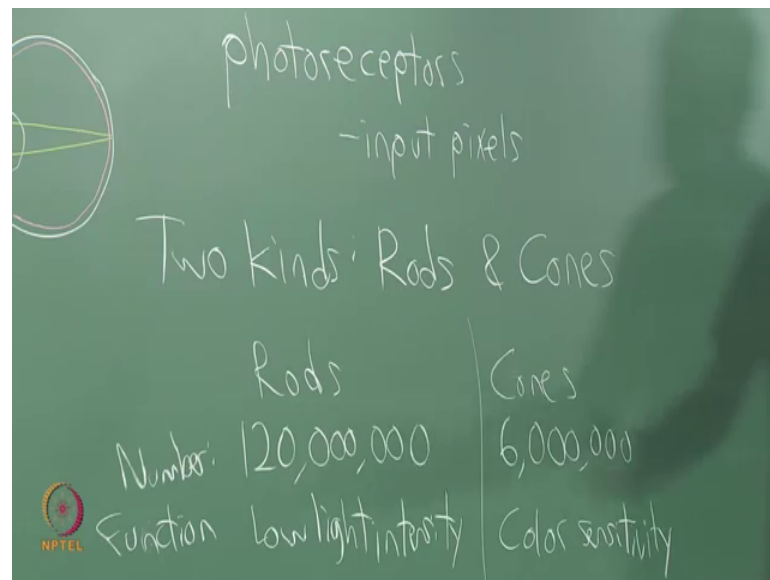 photoreceptors
-input pixels
Two kinds: Rods & Cones
Rods Cones
Number: 120,000,000 6,000,000
Function Low light intensity Color sensitivity
NPTEL